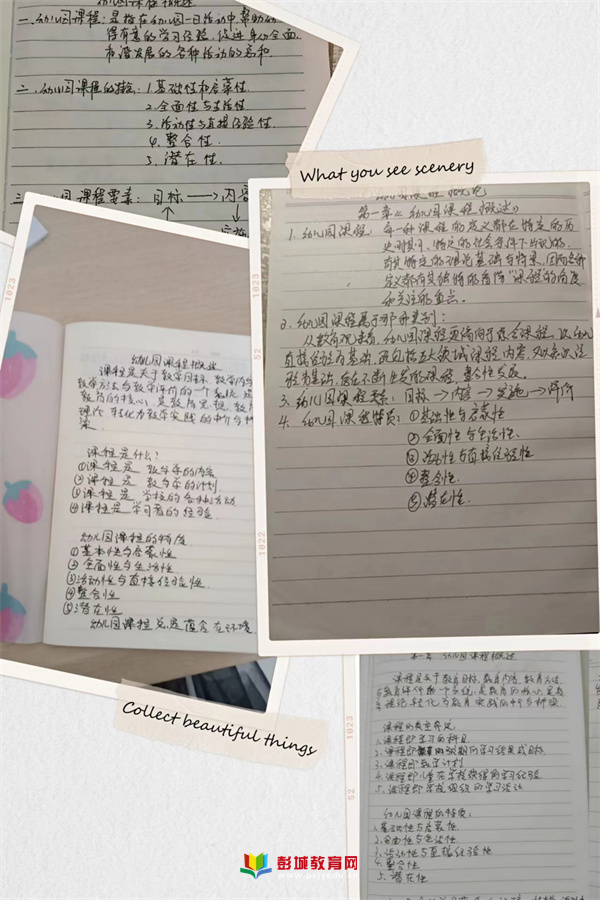 幼儿园课程概述
一、幼儿园课程：是指在幼儿园一日活动中帮助幼
得有意的学习经验，促进身心全面
和谐发展的各种活动的总和.
二、幼儿园课程的特点：1.基础性和启蒙性.
2.全面性与生活性
3.活动性与直接经验性.
4.整合性.
5.潜在性.
三、幼儿园课程要素：目标→内容
What you see scenery
幼儿园课程概论
第一章《幼儿园课程概述》
1.幼儿园课程：每一种课程的定义都在特定的历
史时期、特定的社会条件下出现的.
有其特定的理论基础与背景，因而各种
定义都有其独特的看待“课程的角度
和关注的重点。
2.幼儿园课程属于哪种类别：
从教育观来看，幼儿园课程更倾向于综合课程，以幼
3.幼儿园课程要素：目标→内容→实施→评价
4.幼儿园课程特质：①基础性与启蒙性
②全面性与生活性.
③活动性与直接经验性
④整合性.
⑤潜在性.
幼儿园课程概述
课程是关于教学目标、教学内容
教学方法与教学评价的一个系统，是
教育的核心，是教育思想、教
理论转化为教学实践的中介与桥
梁.
课程是什么？
①课程是 教与学的内容
②课程是 教与学的计划
③课程是 学校的各种活动
④课程是 学习者的经验.
幼儿园课程的特质
①基本性与启蒙性
②全面性与生活性
③活动性与直接经验性
④整合性
⑤潜在性
幼儿园课程总是蕴含在环境
Collect beautiful things
第一章 幼儿园课程概述
课程是关于教育目标、教育内容、教育方法
课程的类型界定.
1.课程即学习的科目.
2.课程即预期的学习结果或目标.
3.课程即教学计划
4.课程即儿童在学校获得的学习经验
5.课程即学校组织的学习活动
幼儿园课程的特质：
1.基础性与启蒙性.
2.全面性与生活性
3.活动性与直接经验性
4.整合性
5.潜在性
彭城教育网